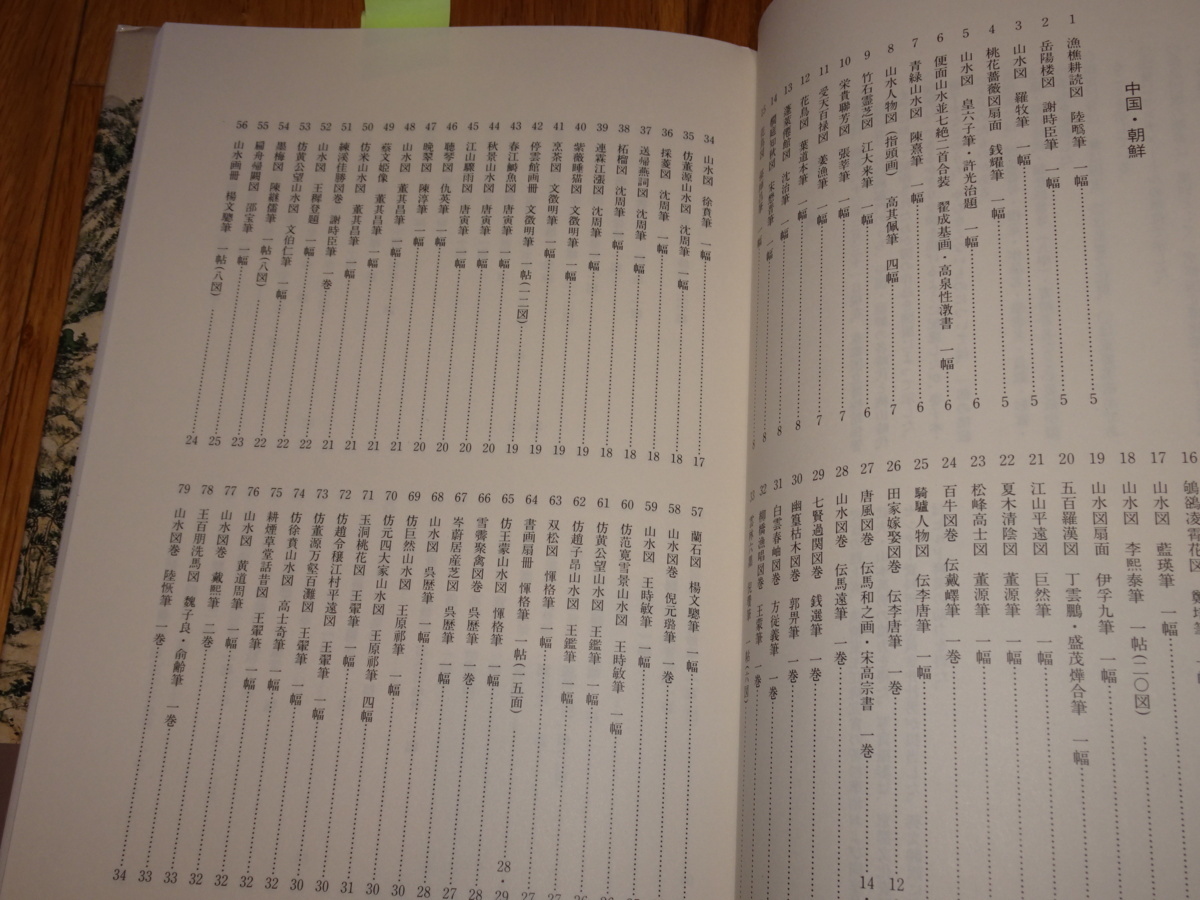 中国・朝鮮
1 漁樵耕読図 陸㬙筆 一幅 5
2 岳陽楼図 謝時臣筆 一幅 5
3 山水図 羅牧筆 一幅 5
4 桃花薔薇図扇面 銭耀筆 一幅 5
5 山水図 皇六子筆・許光治題 一幅 6
6 便面山水並七絶二首合装 翟成基画・高泉性潡書 一幅 6
7 青緑山水図 陳熹筆 一幅 6
8 山水人物図(指頭画) 高其佩筆 四幅 7
9 竹石霊芝図 江大来筆 一幅 6
10 栄貴聯芳図 張莘筆 一幅 7
11 受天百禄図 姜漁筆 一幅 7
12 花鳥図 葉道本筆 一幅 8
13 蓬莱僊館図 沈治筆 一幅 8
14
15
16
17 山水図 藍瑛筆 一幅
18 山水図 李熙泰筆 一帖(二〇図)
19 山水図扇面 伊孚九筆 一幅
20 五百羅漢図 丁雲鵬・盛茂燁合筆 一幅
21 江山平遠図 巨然筆 一幅
22 夏木清陰図 董源筆 一幅
23 松峰高士図 董源筆 一幅
24 百牛図巻 伝戴嶧筆 一巻
25 騎驢人物図 伝李唐筆 一幅
26 田家嫁娶図巻 伝李唐筆 一巻 12
27 唐風図巻 伝馬和之画・宋高宗書 一巻 14
28 山水図巻 伝馬遠筆 一巻
29 七賢過関図巻 銭選筆 一巻
30 幽篁枯木図巻 郭畀筆 一巻
31 白雲春岫図巻 方従義筆 一巻
32 王蒙筆 一巻
34 山水図 徐賁筆 一幅 17
35 仿董源山水図 沈周筆 一幅 18
36 採菱図 沈周筆 一幅 18
37 送帰燕詞図 沈周筆 一幅 18
38 柘榴図 沈周筆 一幅 18
39 連霖江漲図 沈周筆 一幅 18
40 紫薇睡猫図 文徴明筆 一幅 19
41 烹茶図 文徴明筆 一幅 19
42 停雲館画冊 文徴明筆 一帖(一二図) 19
43 春江鱖魚図 唐寅筆 一幅 19
44 秋景山水図 唐寅筆 一幅 20
45 江山驟雨図 唐寅筆 一幅 20
46 聴琴図 仇英筆 一幅 20
47 晩翠図 陳淳筆 一幅 20
48 山水図 董其昌筆 一幅 21
49 羲文姫像 董其昌筆 一幅 21
50 仿米山水図 董其昌筆 一幅 21
51 練溪佳勝図巻 謝時臣筆 一巻 21
52 山水図 王穉登題 一幅 22
53 仿黄公望山水図 文伯仁筆 一幅 22
54 墨梅図 陳継儒筆 一幅 22
55 扁舟帰闕図 邵宝筆 一幅 23
56 山水画冊 楊文驄筆 一帖(八図) 24
57 蘭石図 楊文驄筆 一幅
58 山水図巻 倪元璐筆 一巻
59 山水図 王時敏筆 一幅
60 仿范寛雪景山水図 王時敏筆 一幅
61 仿黄公望山水図 王鑑筆 一幅
62 仿趙子昂山水図 王鑑筆 一幅
63 双松図 惲格筆 一幅
64 書画扇冊 惲格筆 一帖(一五面) 28・29
65 仿王蒙山水図 惲格筆 一幅 27
66 雪霽聚禽図巻 呉歴筆 一巻 28
67 岑蔚居産芝図 呉歴筆 一幅 27
68 山水図 呉歴筆 一幅 28
69 仿巨然山水図 王原祁筆 一幅 30
70 仿元四大家山水図 王原祁筆 四幅 30
71 玉洞桃花図 王翬筆 一幅 31
72 仿趙令穣江村平遠図 王翬筆 一幅 30
73 仿董源万壑百灘図 王翬筆 一幅 30
74 仿徐賁山水図 王翬筆 一幅 32
75 耕煙草堂話昔図 高士奇筆 一幅 32
76 山水図 黄道周筆 一幅 32
77 山水図巻 戴熙筆 二巻 33
78 王百朋洗馬図 魏子良・兪齢筆 一巻 33
79 山水図巻 陸恢筆 一巻 34